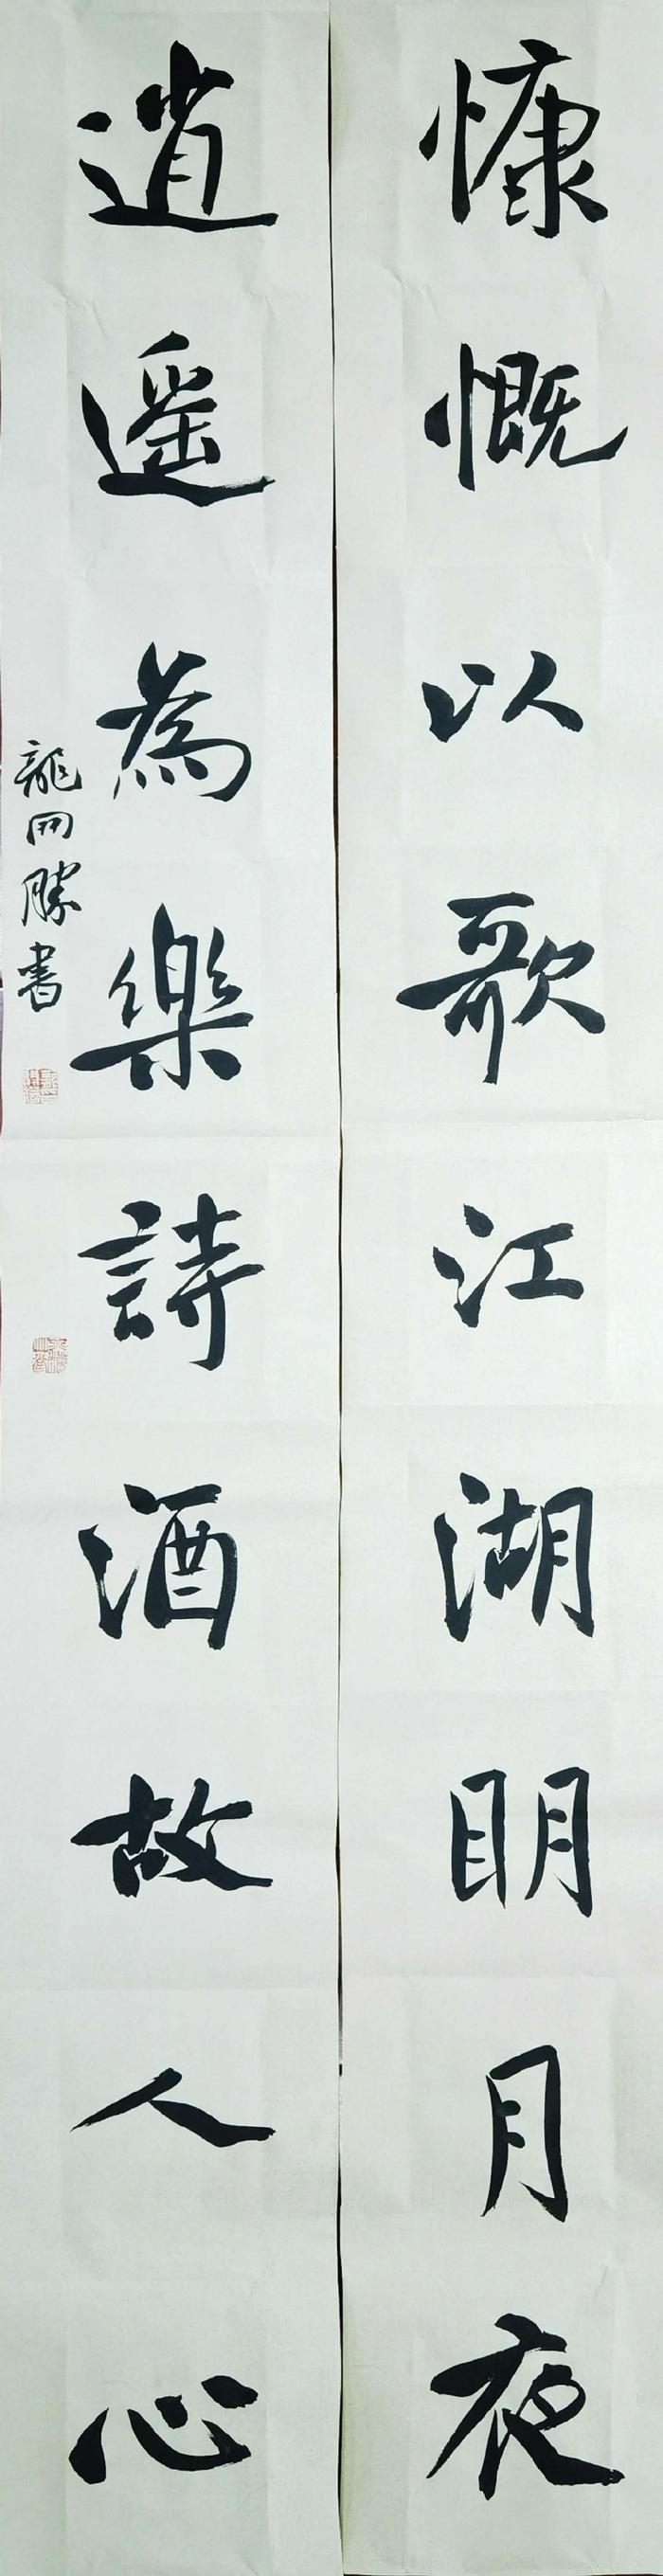 慷慨以歌江湖明月夜
逍遥為樂詩酒故人心
龍開勝書